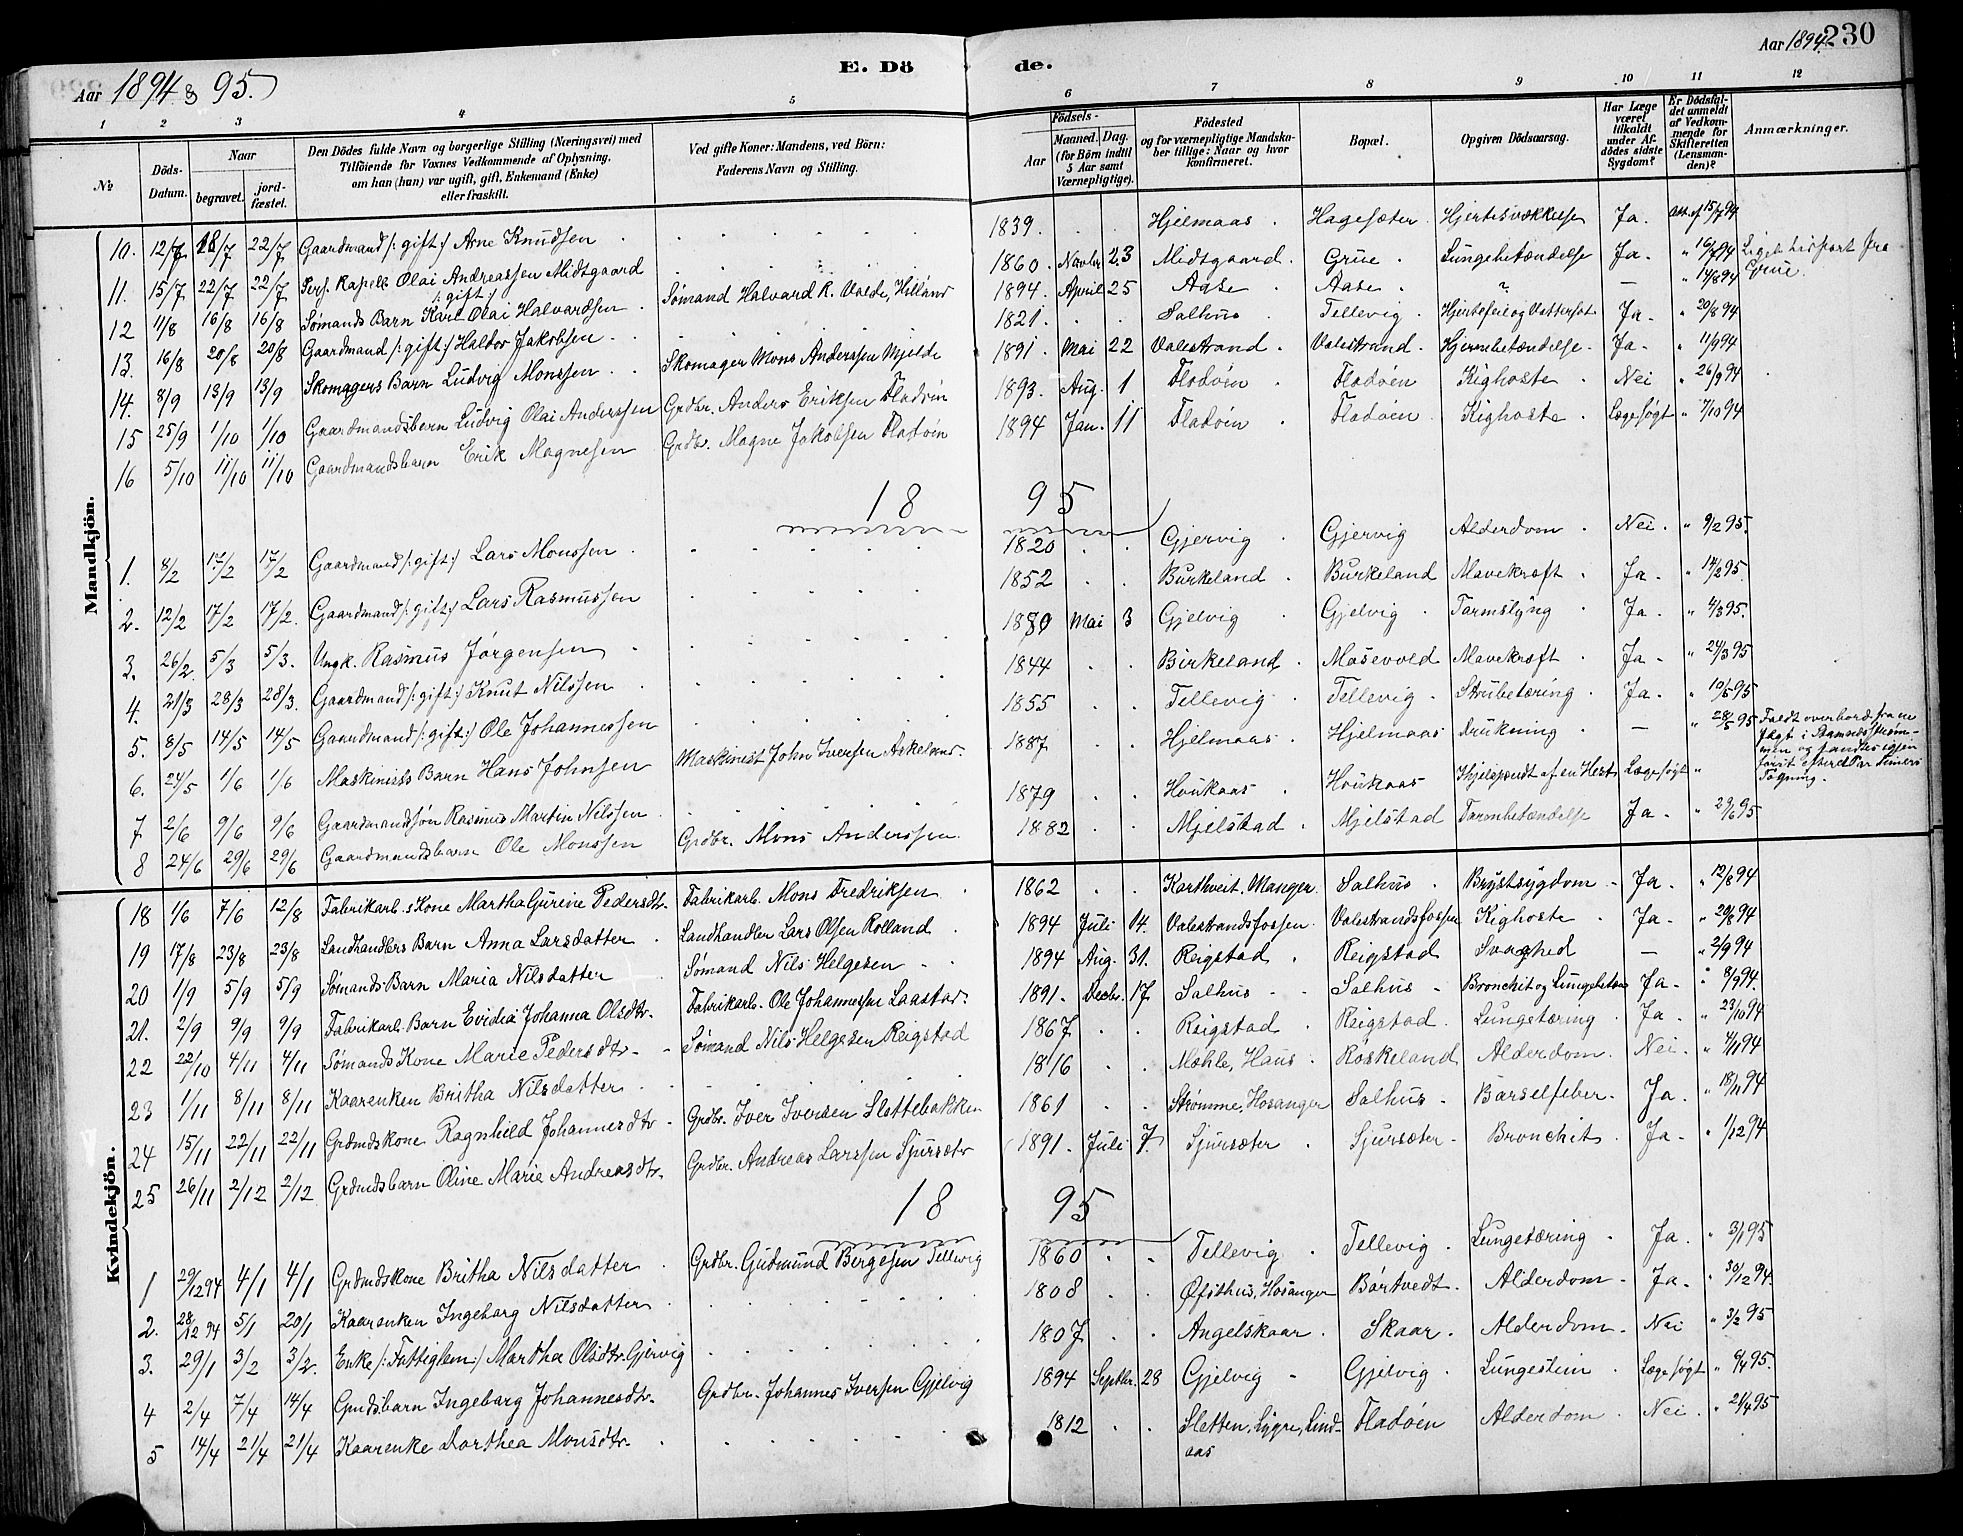 Aar 1894 & 95.
E. Dö de.
Aar 1894.
230
1 2 3 4 5 6 7 8 9 10 11 12
No
Döds-Datum.
Naar
begravet.
jord-fæstet.
Den Dödes fulde Navn og borgerlige Stilling (Næringsvei) med
Tilföiende for Voxnes Vedkommende af Oplysning,
om han (hun) var ugift, gift, Enkemand (Enke)
eller fraskilt.
Ved gifte Koner: Mandens, ved Börn:
Faderens Navn og Stilling.
Födsels-
Aar
Maaned. Dag.
(for Börn indtil
5 Aar samt
Værnepligtige).
Födested
og for værnepligtige Mandska-
ber tillige: Naar og hvor
konfirmeret.
Bopæl.
Opgiven Dödsaarsag.
Har Læge
været
tilkaldt
under Af-
dödes sidste
Sygdom?
Er Dödsfal-
det anmeldt
af Vedkom-
mende for
Skifteretten
(Lensman-
den)?
Anmærkninger.
Mandkjön.
10. 12/7 18/7 22/7 Gaardmand /: gift :/ Arne Knudsen 1839. Hjelmaas Hagesæter Hjertesvækkelse Ja. Att. af 15/7 94
11. 15/7 22/7 22/7 Olai Andreassen Midtgaard /: gift :/ 1860. Novbr 23 Midtgaard Grue Lungebetændelse Ja. " 16/7 94 Liget hidført fra Grue.
12 11/8 16/8 16/8 Sømands Barn Karl Olai Halvardsen Sømand Halvard K. Valde, Hilland 1894. April 25 Aase Aase ? — " 14/8 94
13. 16/8 20/8 20/8 Gaardmand /: gift :/ Haldor Jakobsen 1821. Salhus Tellevig Hjertefeil og Vattersot Ja. " 20/8 94
14. 8/9 13/9 13/9 Skomagers Barn Ludvig Monssen Skomager Mons Anderssen Mjelde 1891. Mai 22 Valestrand Valestrand Hjernebetændelse Ja. " 11/9 94
15 25/9 1/10 1/10 Gaardmandsbarn Ludvig Olai Anderssen Grdbr. Anders Eriksen Fladøen 1893. Aug. 1 Fladøen Fladøen Kighoste Nei " 26/9 94
16 5/10 11/10 11/10 Gaardmandsbarn Erik Magnesen Grdbr. Magne Jakobsen Fladøen 1894 Jan. 11 Fladøen Fladøen Kighoste Læge søgt " 7/10 94
18 95
1. 8/2 17/2 17/2 Gaardmand /: gift :/ Lars Monssen 1820 Gjervig Gjervig Alderdom Nei " 9/2 95
2. 12/2 17/2 17/2. Gaardmand /: gift :/ Lars Rasmussen 1852 Burkeland Burkeland Mavekræft Ja. " 14/2 95.
3. 26/2 5/3 5/3. Ungk. Rasmus Jørgensen 1880 Mai 3 Gjelvig Gjelvig Tarmslyng Ja. " 4/3 95.
4. 21/3 28/3 28/3. Gaardmand /: gift :/ Knut Nilssen 1844 Birkeland Mosevold Mavekræft Ja. " 24/3 95
5. 8/5 14/5 14/5 Gaardmand /: gift :/ Ole Johannessen 1855 Tellevig Tellevig Strubetæring Ja. " 10/5 95
6. 24/5 1/6 1/6 Maskinists Barn Hans Johnsen Maskinist John Iversen Askeland. 1887 Hjelmaas Hjelmaas Drukning — " 28/5 95 Faldt overbord fra en Jægt i og fandtes igjen først efter et Par Timers Søgning.
7 2/6 9/6 9/6 Gaardmandssøn Rasmus Martin Nilssen 1879 Houkaas Houkaas Ihjelspændt af en Hest Læge søgt "
8 24/6 29/6 29/6 Gaardmandsbarn Ole Monssen Grdbr. Mons Anderssen 1882 Mjelstad Mjelstad Tarmbetændelse Ja. " 29/6 95
Kvindekjön.
18 1/6 7/6 12/8 Fabrikarb.s Kone Martha Gurine Pedersdtr. Fabrikarb. Mons Fredriksen 1862 Karthveit, Manger Salhus Brystsygdom Ja. " 12/8 94
19 17/8 23/8 23/8 Landhandlers Barn Anna Larsdatter Landhandler Lars Olsen Rolland 1894 Juli 14. Valestrandsfossen Valestrandsfossen Kighoste Ja. " 20/8 94
20 1/9 5/9 5/9 Sømands Barn Maria Nilsdatter Sømand Nils Helgesen 1894 Aug. 31. Reigstad Reigstad Svaghed — " 2/9 94
21. 2/9 9/9 9/9 Fabrikarb. Barn Evidia Johanna Olsdtr. Fabrikarb. Ole Johannessen Laastad. 1891. Decbr. 17 Salhus Salhus Bronchit og Lungebetæn Ja. " 8/9 94.
22 22/10 4/11 4/11 Sømands Kone Marie Pedersdtr. Sømand Nils Helgesen Reigstad 1867 Reigstad Reigstad Lungetæring Ja. " 23/10 94
23 1/11 8/11 8/11 Kaarenken Britha Nilsdatter 1816 Mæhle, Haus Røskeland Alderdom Nei. " 4/11 94
24 15/11 22/11 22/11 Grdmdskone Ragnhild Johannesdtr Grdbr. Iver Iversen Slettebakken 1861 Strømme, Hosanger Salhus Barselfeber Ja. " 18/11 94
25 26/11 2/12 2/12 Grdmdsbarn Oline Marie Andreasdtr. Grdbr. Andreas Larssen Sjursæter 1891. Juli 7. Sjursæter Sjursæter Bronchit Ja. " 1/12 94
18 95
1 29/12 94 4/1 4/1 Grdmdskone Britha Nilsdatter Grdbr. Gudmund Bergesen Tellevig 1860 Tellevig Tellevig Lungetæring Ja. " 3/1 95
2. 28/12 94 5/1 20/1 Kaarenken Ingeborg Nilsdatter 1808 Øfsthus, Hosanger Børtvedt Alderdom Ja. " 30/12 94
3. 29/1 3/2 3/2. Enke /: Fattiglem :/ Martha Olsdtr. Gjervig 1807 Angelskaar Skaar Alderdom Nei " 3/2 95
4 2/4 7/4 14/4 Gmdsbarn Ingeborg Johannesdtr. Grdbr. Johannes Iversen Gjelvig 1894 Septbr. 28 Gjelvig Gjelvig Lungestein Læge søgt " 6/4 95.
5 14/4 21/4 21/4 Kaarenke Dorthea Monsdtr. 1812 Sletten, Lygre, Lindaas Fladøen Alderdom Nei. " 21/4 95